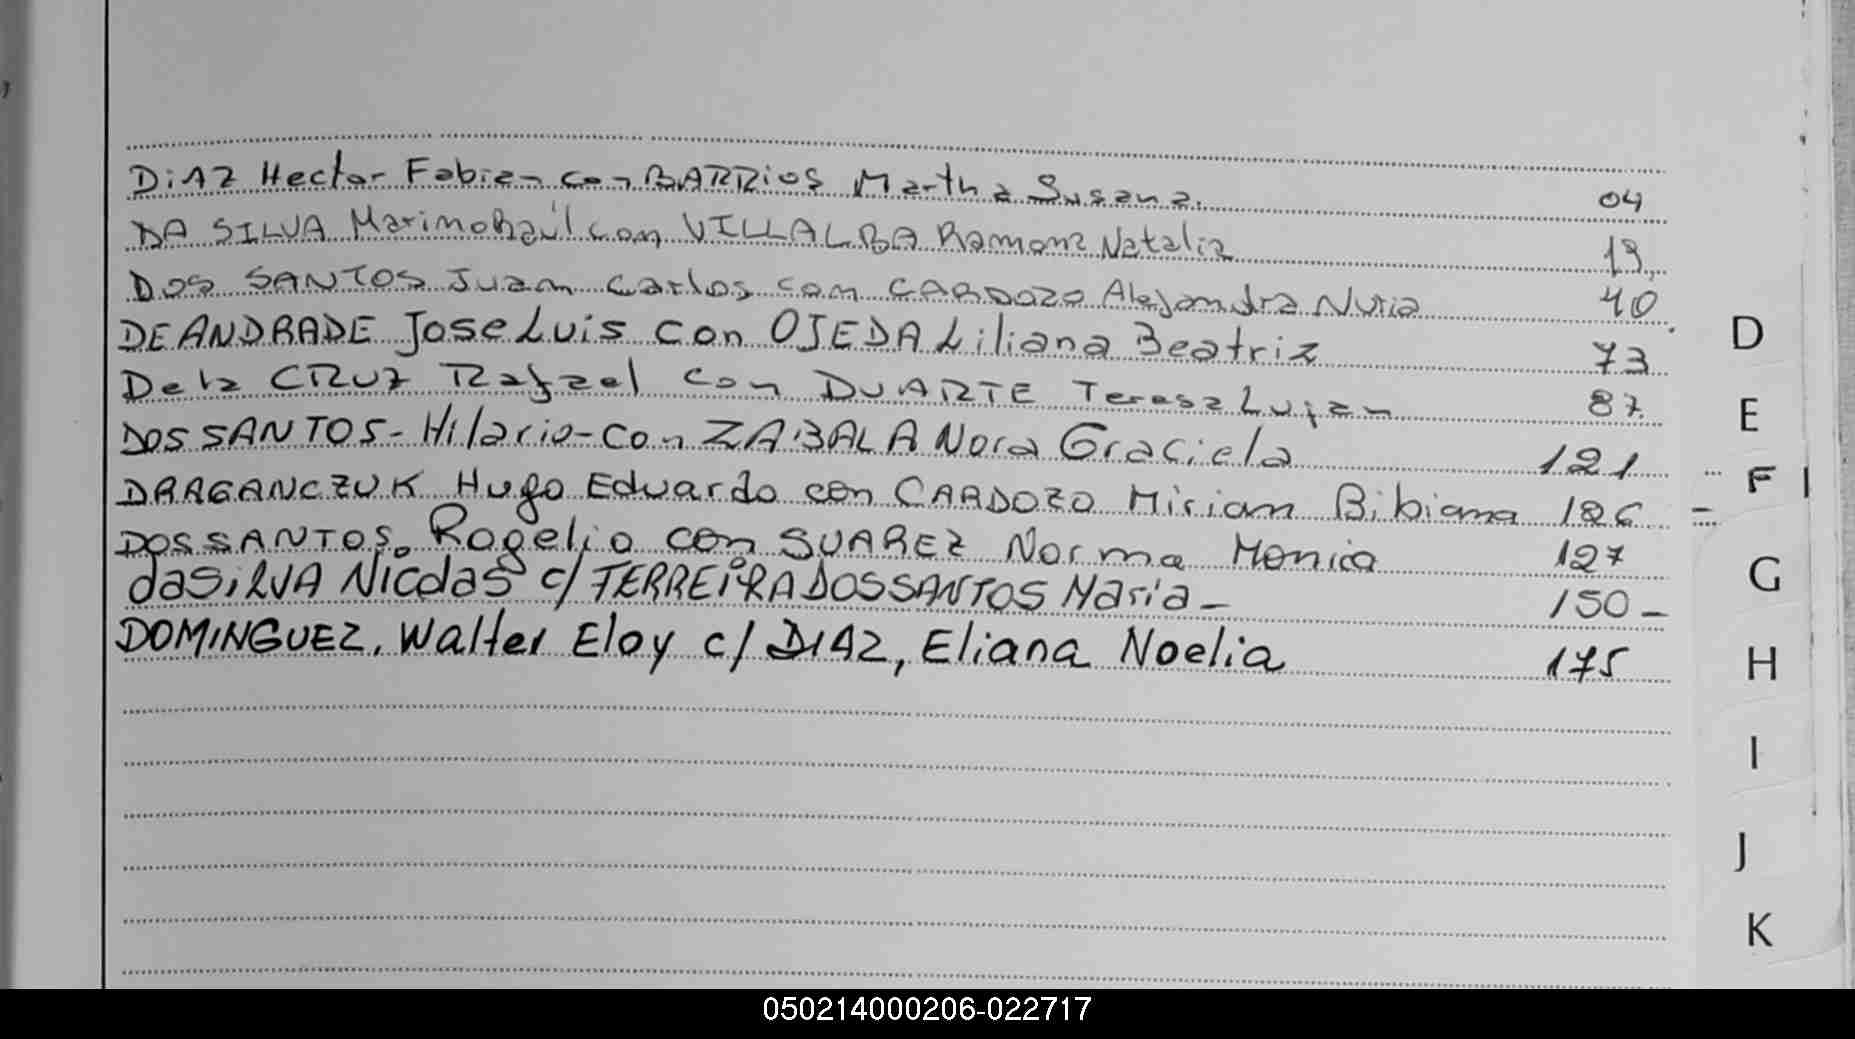 DiAZ Hector Fabian con BARRioS Martha Susana. 04
DA SILVA Marimo Raúl con VILLALBA Ramona Natalia 19
DOS SANTOS Juan Carlos con CARDOZO Alejandra Nuria 40
DE ANDRADE Jose Luis con OJEDA Liliana Beatriz 73
De la CRUZ Rafael con DUARTE Teresa Lujan 87
DOS SANTOS - Hilario - con ZABALA Nora Graciela 121
DRAGANCZUK Hugo Eduardo con CARDOZO Miriam Bibiana 126
DOS SANTOS. Rogelio con SUAREZ Norma Monica 127
da SiLVA Nicolas c/ TERREiRA DOS SANTOS Maria - 150 -
DOMINGUEZ, Walter Eloy c/ DIAZ, Eliana Noelia 175
D
E
F
G
H
I
J
K
050214000206-022717